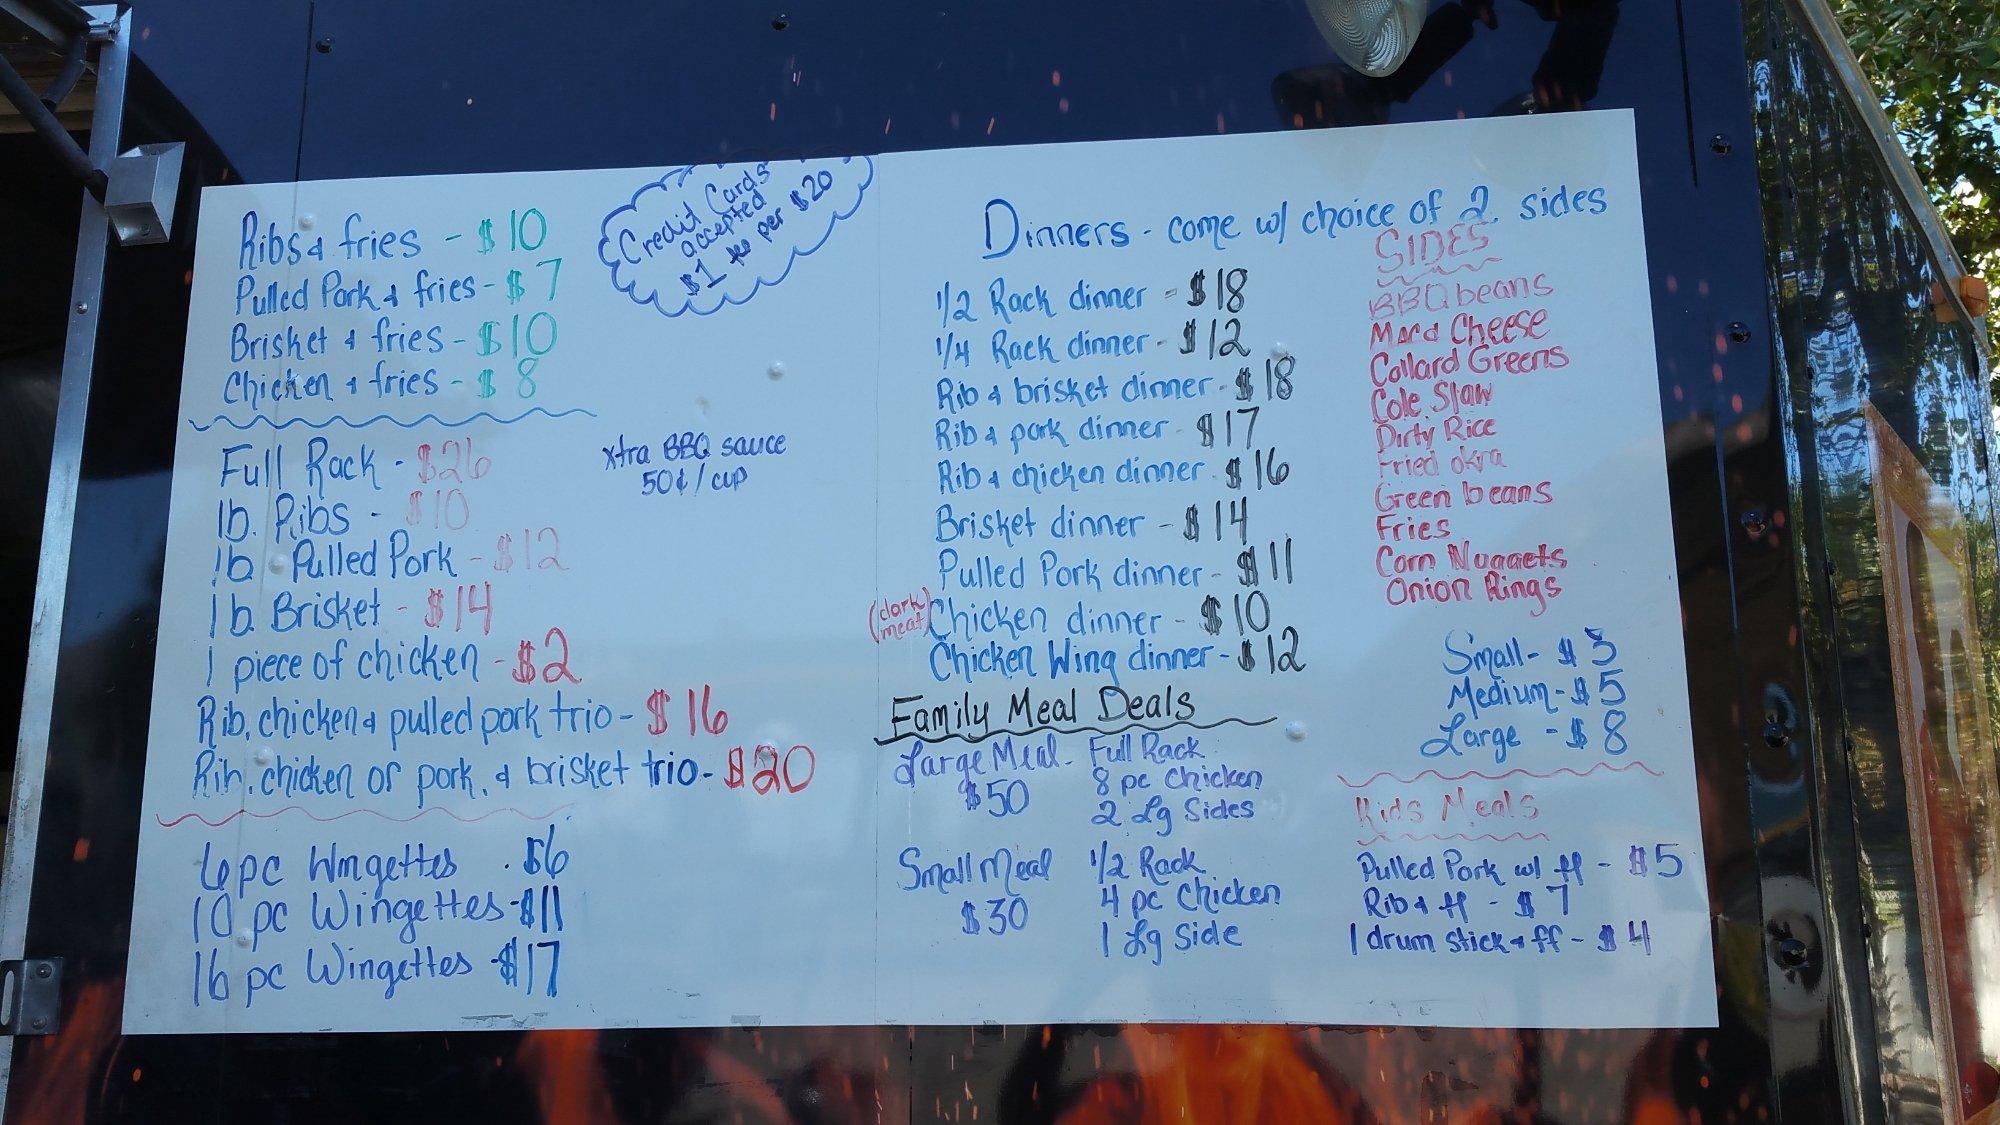 Ribs & fries - $10
Pulled Pork & fries - $7
Brisket & fries - $10
Chicken & fries - $8
Credit Cards
accepted
$1 fee per $20
Full Rack - $26
lb. Ribs - $10
lb. Pulled Pork - $12
lb. Brisket - $14
1 piece of chicken - $2
Rib, chicken & pulled pork trio - $16
Rib, chicken or pork, & brisket trio - $20
xtra BBQ sauce
50¢/cup
6 pc Wingettes - $6
10 pc Wingettes - $11
16 pc Wingettes - $17
Dinners - come w/ choice of 2 sides
1/2 Rack dinner - $18
1/4 Rack dinner - $12
Rib & brisket dinner - $18
Rib & pork dinner - $17
Rib & chicken dinner - $16
Brisket dinner - $14
Pulled Pork dinner - $11
(dark meat) Chicken dinner - $10
Chicken Wing dinner - $12
SIDES
BBQ beans
Mac & Cheese
Collard Greens
Cole Slaw
Dirty Rice
Fried okra
Green beans
Fries
Corn Nuggets
Onion Rings
Small - $3
Medium - $5
Large - $8
Family Meal Deals
Large Meal - Full Rack
$50 8 pc Chicken
2 Lg Sides
Small Meal 1/2 Rack
$30 4 pc Chicken
1 Lg Side
Kids Meals
Pulled Pork w/ ff - $5
Rib & ff - $7
1 drum stick & ff - $4